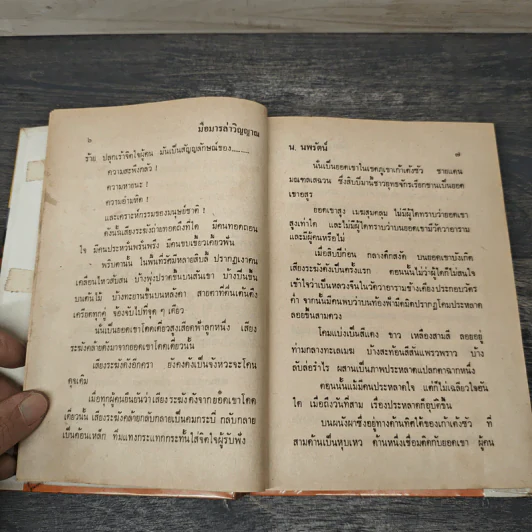 ๖
มือมารล่าวิญญาณ
ร้าย ปลุกเร้าจิตใจผู้คน มันเป็นสัญญลักษณ์ของ........
ความสะพึงกลัว !
ความหายนะ !
ความอำมหิต !
และเคราะห์กรรมของมนุษย์ชาติ !
ดังนั้นเสียงระฆังถ่ายทอดถึงที่ใด มีคนทอดถอน
ใจ มีคนประหวั่นพรั่นพรึง มีคนขบเขี้ยวเคี้ยวฟัน
พริบตานั้น ในพื้นที่รัศมีหลายสิบลี้ ปรากฏเงาคน
เคลื่อนไหวสับสน บ้างพุ่งปราดขึ้นบนสันเขา บ้างปีนขึ้น
บนต้นไม้ บ้างทะยานขึ้นบนหลังคา สายตาที่ตื่นเต้นตึง
เครียดทุกคู่ จ้องจับไปที่จุด ๆ เดียว
นั่นเป็นยอดเขาโดดเดี่ยวสูงเสียดฟ้าลูกหนึ่ง เสียง
ระฆังคล้ายดังมาจากยอดเขาโดดเดี่ยวนั้น
เสียงระฆังดังอีกครา ยังคงดังเป็นจังหวะจะโคน
ดุจเดิม
เมื่อทุกผู้คนยืนยันว่าเสียงระฆังดังจากยอดเขาโดด
เดี่ยวนั้น เสียงระฆังคล้ายกลับกลายเป็นคมกระบี่ กลับกลาย
เป็นค้อนเหล็ก ทิ่มแทงกระแทกกระทั้นใส่จิตใจผู้รับฟัง
น. นพรัตน์
๗
นั่นเป็นยอดเขาในเขตภูเขาเก้าคังชัว ชายแดน
มณฑลเสฉวน ซึ่งสิบปีมานี้ชาวยุทธจักรเรียกขานเป็นยอด
เขาอสูร
ยอดเขาสูง เมฆสุมคลุม ไม่มีผู้ใดทราบว่ายอดเขา
สูงเท่าใด และไม่มีผู้ใดทราบว่าบนยอดเขามีวัดวาอาราม
และมีผู้คนหรือไม่
เมื่อสิบปีก่อน กลางดึกสงัด บนยอดเขาบังเกิด
เสียงระฆังดังเป็นครั้งแรก ตอนนั้นไม่ว่าผู้ใดก็ไม่สนใจ
เข้าใจว่าเป็นหลวงจีนในวัดวาอารามข้างเคียงประกอบวัตร
ค่ำ จากนั้นมีคนพบว่าบนท้องฟ้ามืดมิดปรากฏโคมประหลาด
ลอยขึ้นสามดวง
โคมแบ่งเป็นสีแดง ขาว เหลืองสามสี ลอยอยู่
ท่ามกลางทะเลเมฆ บ้างสะท้อนสีสันแพรวพราว บ้าง
ลิบลี่อร่ำไร ผสานเป็นภาพประหลาดแปลกตาฉากหนึ่ง
ตอนนั้นแม้มีคนประหลาดใจ แต่ก็ไม่เฉลียวใจอัน
ใด เมื่อถึงวันที่สาม เรื่องประหลาดก็อุบัติขึ้น
บนผนังผาซึ่งอยู่ทางด้านทิศใต้ของเก้าเคังชัว ที่
สามด้านเป็นหุบเหว ด้านหนึ่งเชื่อมติดกับยอดเขา ผู้คน